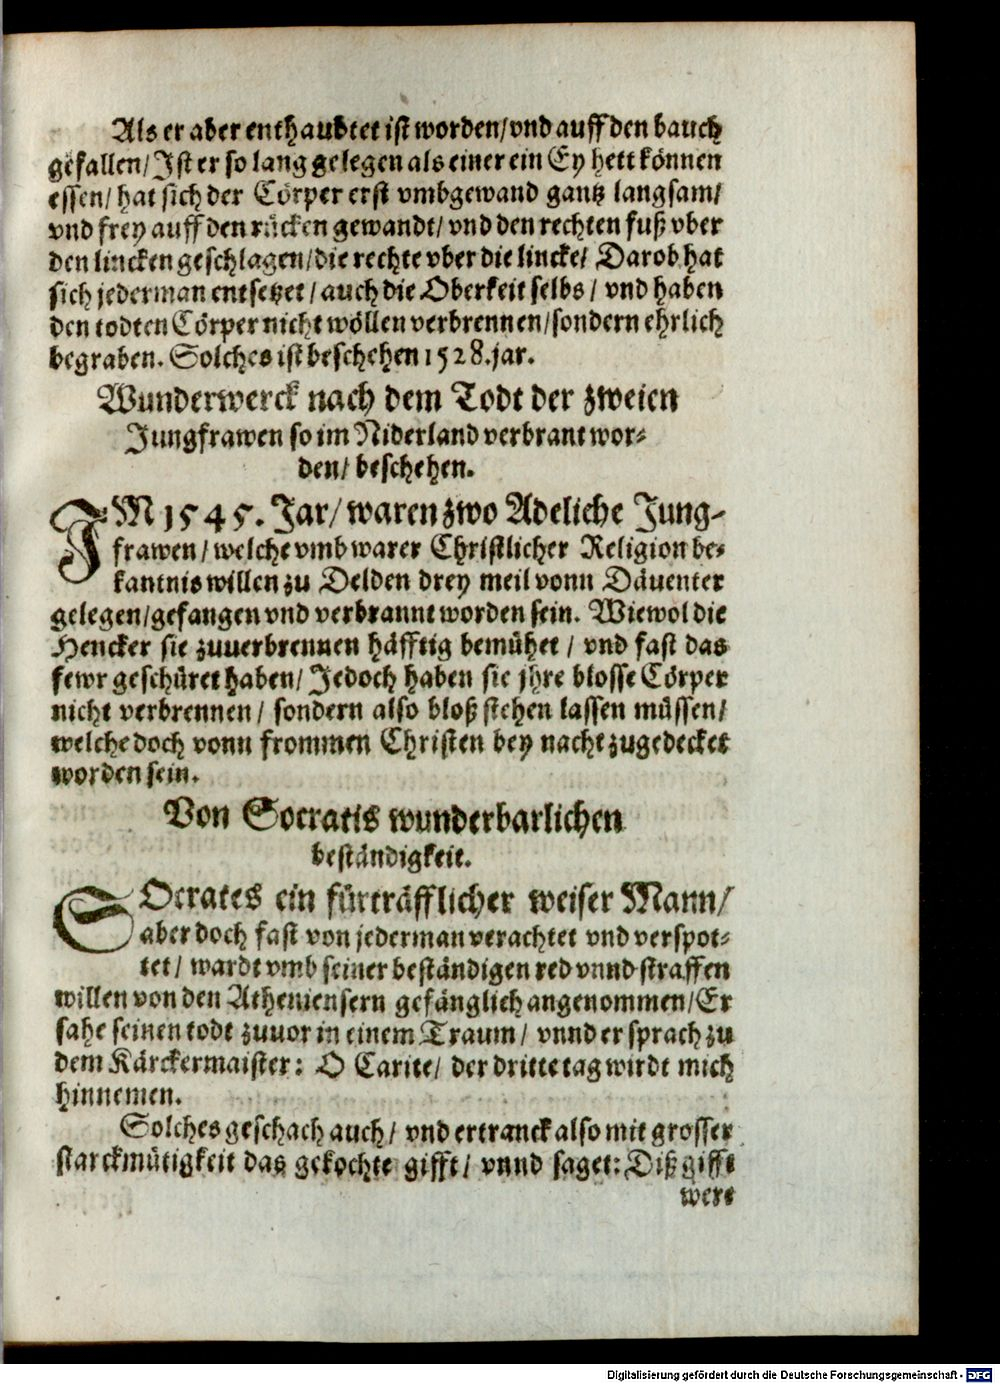 Als er aber enthaubtet ist worden/vnd auff den bauch
gefallen/Ist er so lang gelegen als einer ein Ey hett können
essen/ hat sich der Cörper erst vmbgewand gantz langsam/
vnd frey auff den rücken gewandt/ vnd den rechten fuß vber
den lincken geschlagen/die rechte vber die lincke/ Darob hat
sich jederman entsetzet/ auch die Oberkeit selbs/ vnd haben
den todten Cörper nicht wöllen verbrennen/sondern ehrlich
begraben. Solches ist beschehen 1528.jar.
Wunderwerck nach dem Todt der zweien
Jungfrawen so im Niderland verbrant wor-
den/ beschehen.
IM 1545. Jar/ waren zwo Adeliche Jung-
frawen/ welche vmb warer Christlicher Religion be-
kantnis willen zu Delden drey meil vonn Däuenter
gelegen/gefangen vnd verbrannt worden sein. Wiewol die
Hencker sie zuuerbrennen häfftig bemühet/ vnd fast das
fewr geschüret haben/ Jedoch haben sie jhre blosse Cörper
nicht verbrennen/ sondern also bloß stehen lassen müssen/
welche doch vonn frommen Christen bey nacht zugedecket
worden sein.
Von Socratis wunderbarlichen
beständigkeit.
SOcrates ein fürträfflicher weiser Mann/
aber doch fast von jederman verachtet vnd verspot-
tet/ wardt vmb seiner beständigen red vnnd straffen
willen von den Atheniensern gefänglich angenommen/Er
sahe seinen todt zuuor in einem Traum/ vnnd er sprach zu
dem Kärckermaister: O Carite/ der dritte tag wirdt mich
hinnemen.
Solches geschach auch/ vnd ertranck also mit grosser
starckmütigkeit das gekochte gifft/ vnnd saget: Diß gifft
were
Digitalisierung gefördert durch die Deutsche Forschungsgemeinschaft - DFG